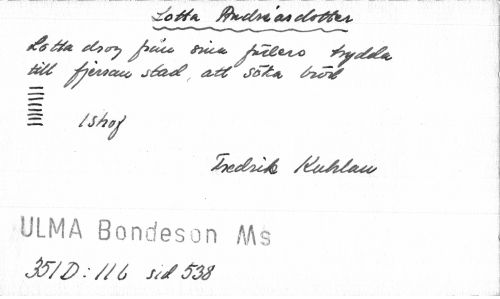 Lotta Andréasdotter
Lotta drog från sina fäders trydda
till fjerran stad, att söka bröd
1 strof
Fredrik Kuhlau
ULMA Bondeson Ms
351D:11b sid 538